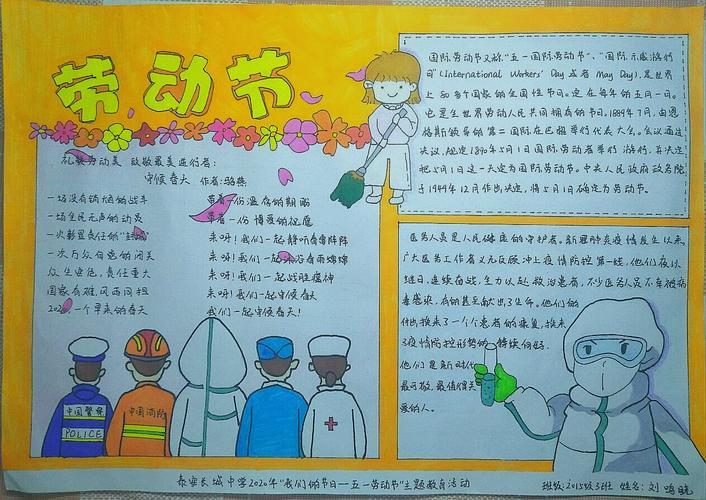 劳动节
礼赞劳动美 致敬最美逆行者:
守候春天 作者:骆燕
一场没有硝烟的战斗
一场全民无声的动员
一次彰显责任的"封城"
一次万众向党的闭关
众生皆忧,责任重大
国家有难,风雨同担
2020,一个早来的春天
带着一份温存的期盼
带着一份博爱的祝愿
来呀!我们一起静听春雷阵阵
来呀!我们一起沐浴春雨绵绵
来呀!我们一起战胜瘟神
来呀!我们一起守候春天
我们!一起守候春天!
中国警察
POLICE
中国消防
国际劳动节又称"五一国际劳动节"、"国际示威游行
日"(International Workers' Day 或者 May Day),是世界
上80多个国家的全国性节日。定在每年的五月一日。
它是全世界劳动人民共同拥有的节日。1889年7月,由恩
格斯领导的第二国际在巴黎举行代表大会。会议通过
决议,规定1890年5月1日国际劳动者举行游行,并决定
把5月1日这一天定为国际劳动节。中央人民政府政务院
于1949年12月作出决定,将5月1日确定为劳动节。
医务人员是人民健康的守护者。新冠肺炎疫情发生以来,
广大医务工作者义无反顾冲上疫情防控第一线,他们夜以
继日,连续奋战,全力以赴救治患者,不少医务人员不幸被病
毒感染,有的甚至献出了生命。他们的
付出换来了一个个患者的康复,换来
了疫情防控形势的持续向好。
他们是新时代
最可敬、最值得关
爱的人。
泰安长城中学2020年"我们的节日—五一劳动节"主题教育活动
班级:2015级3班 姓名:刘鸣晓